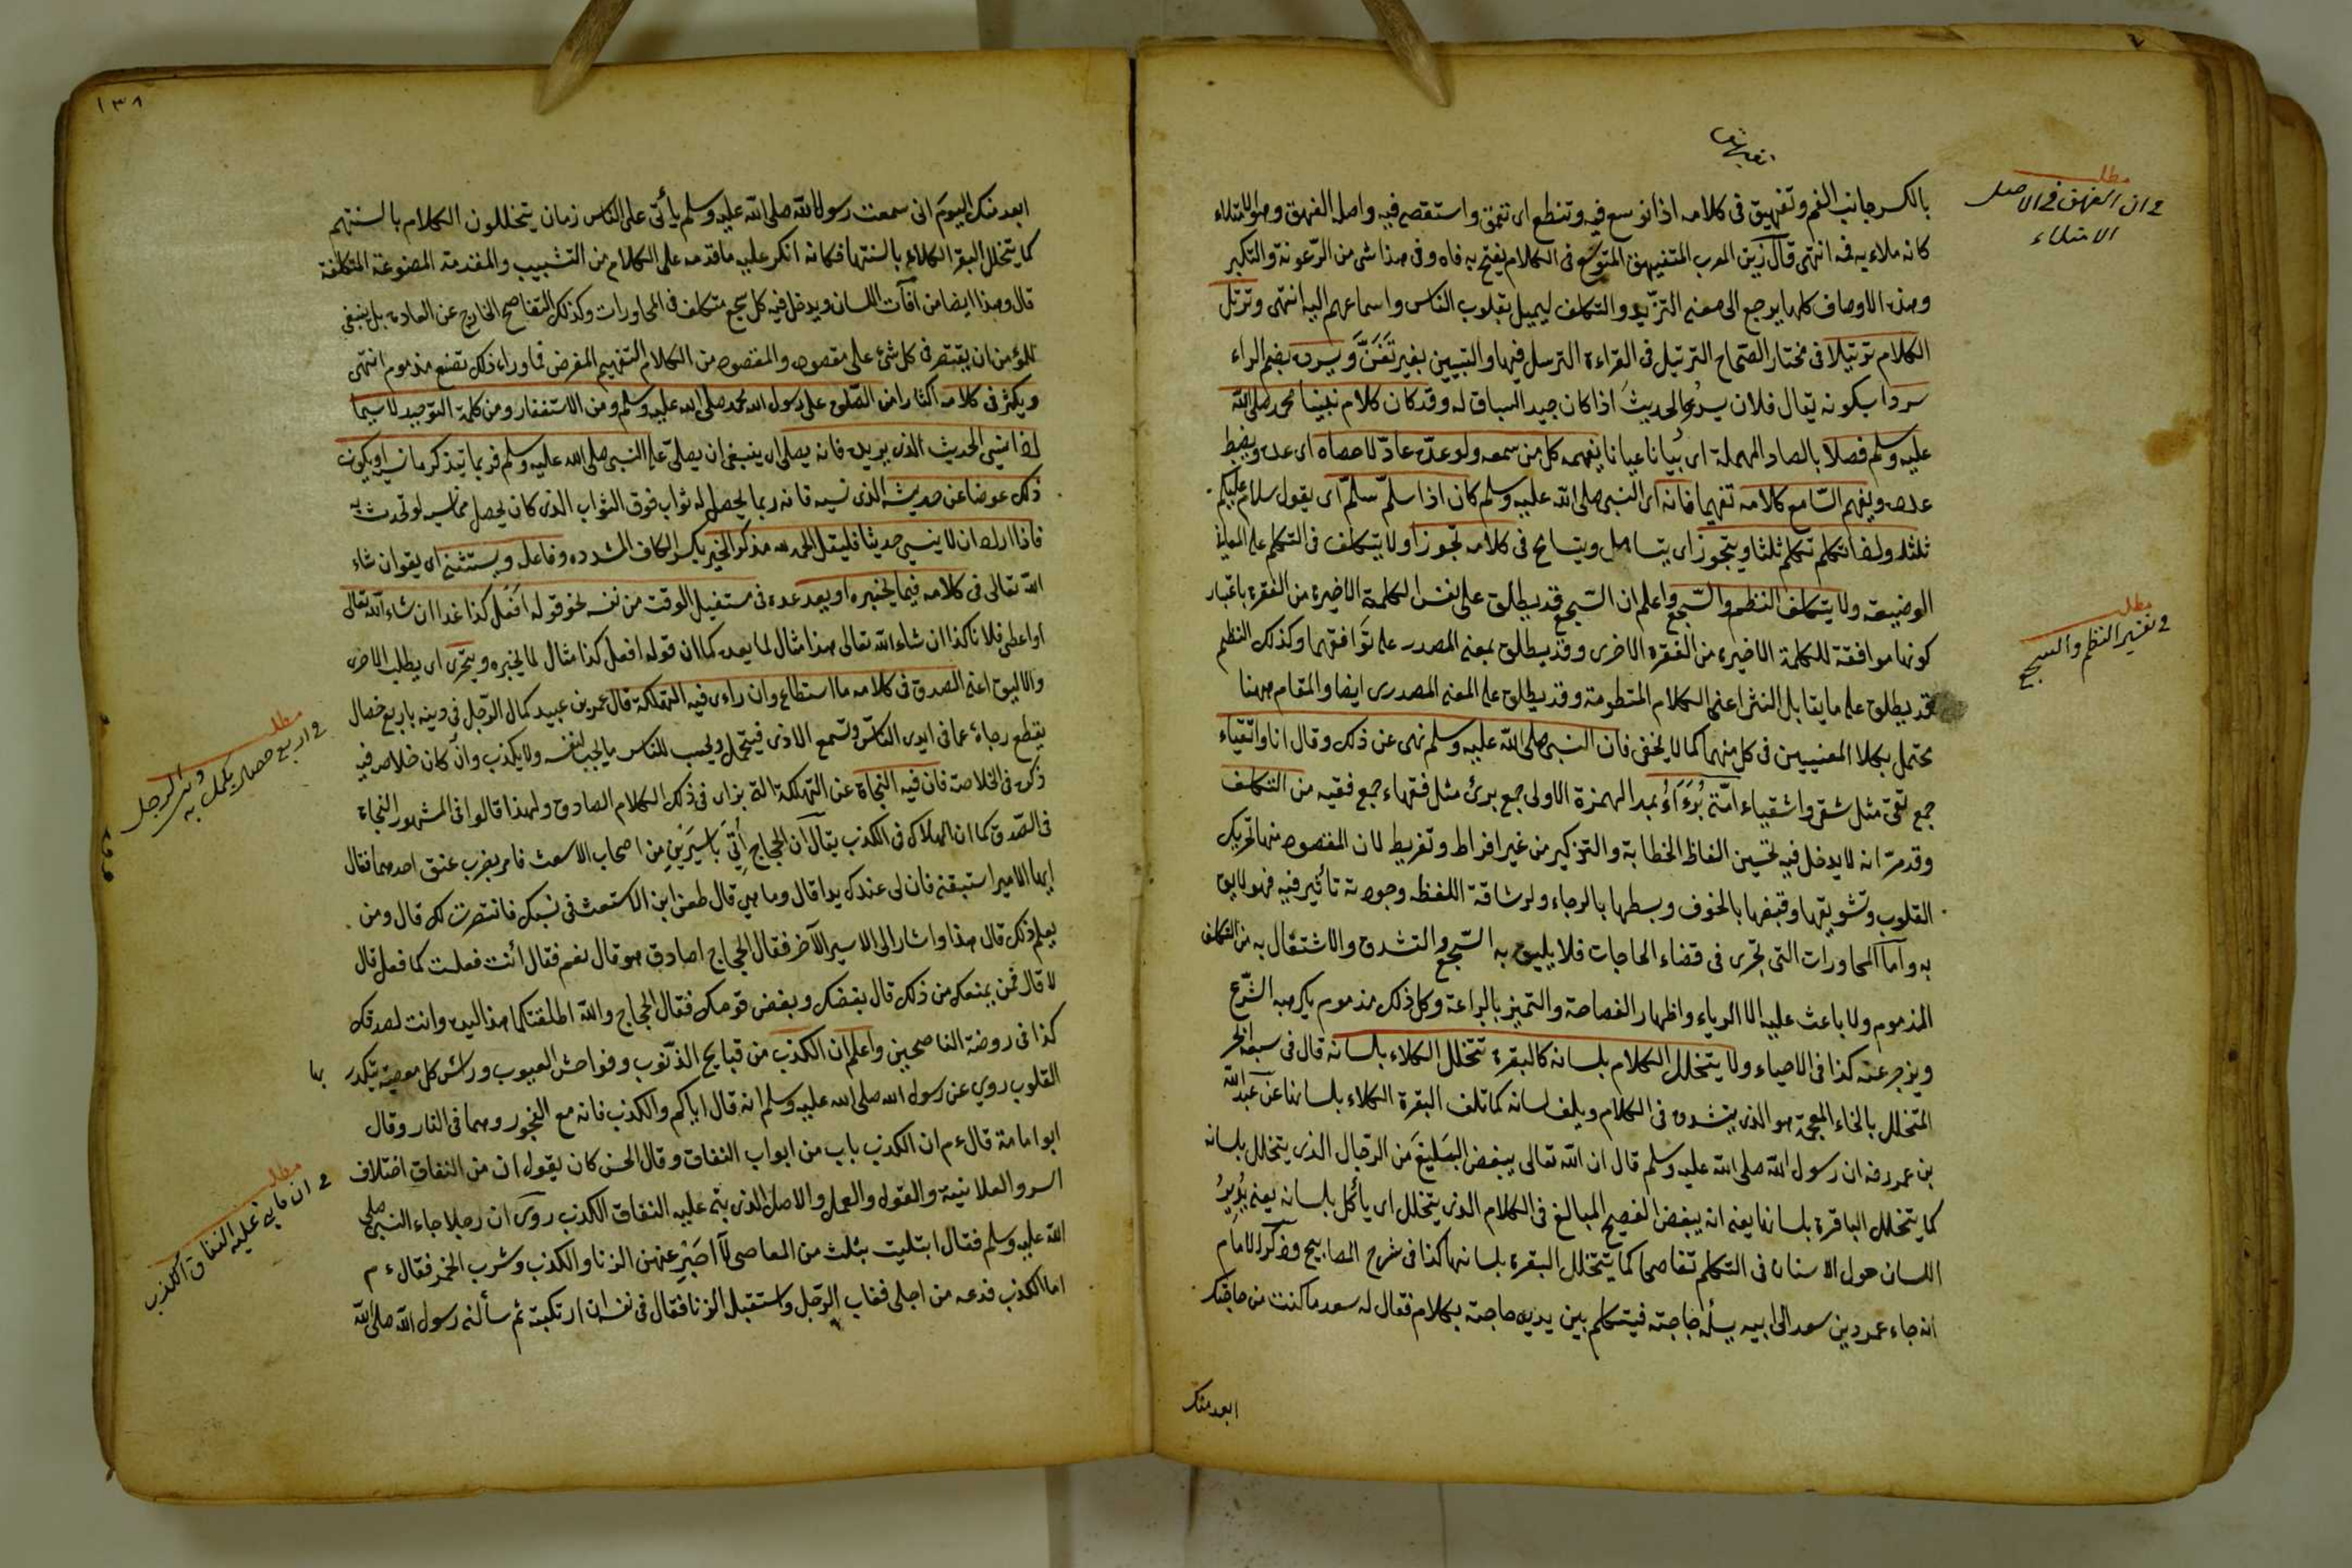 انتهى
بالكسر جانب الفم وتفهيق فى كلامه اذا توسع فيه وتنطع اى تعمق واستقصى فيه واصله الفهق وهو الامتلاء
مطلب
فى ان الفهق فى الاصل
الامتلاء
كانه ملاء به فمه انتهى قال زين العرب المتفيهق المتوسع فى الكلام يفتح به فاه وفى هذا شئ من الرعونة والتكبر
وهذه الاوصاف كلها يرجع الى معنى التزيد والتكلف ليميل بقلوب الناس واسماعهم اليه انتهى وترتل
الكلام ترتيلا فى مختار الصحاح الترتيل فى القراءة الترسل فيها والتبيين بغير تغن ويسرد بضم الراء
سردا بكونه يقال فلان يسرد الحديث اذا كان جيد السياق له وقد كان كلام نبينا محمد صلى الله
عليه وسلم فصلا بالصاد المهملة اى بيانا عيانا يفهمه كل من سمعه ولو عده عاد لاحصاه اى عده ويضبط
عده ويفهم السامع كلامه تفهيما فانه اى النبى صلى الله عليه وسلم كان اذا سلم سلم اى يقول سلام عليكم
ثلثا واذا تكلم تكلم ثلثا ويتجوز اى يتساهل ويتسامح فى كلامه تجوزا ولا يتكلف فى التكلم على المعانى
الوضيعة ولا يتكلف النظم والسجع واعلم ان السجع قد يطلق على نفس الكلمة الاخيرة من الفقرة باعتبار
مطلب
فى تفسير النظم والسجع
كونها موافقة للكلمة الاخيرة من الفقرة الاخرى وقد يطلق بمعنى المصدر على توافقهما وكذلك النظم
قد يطلق على ما يقابل النثر اعنى الكلام المنظومة وقد يطلق على المعنى المصدرى ايضا والمقام ههنا
محتمل بكلا المعنيين فى كل منهما كما لا يخفى فان النبى صلى الله عليه وسلم نهى عن ذلك وقال انا واتقياء
جمع تقى مثل شقى واشقياء امتى برءآء بمد الهمزة الاولى جمع برئ مثل فقهاء جمع فقيه من التكلف
وقد مر انه لا يدخل فيه تحسين الفاظ الخطابة والتذكير من غير افراط وتفريط لان المقصود منها تحريك
القلوب وتشويقها وقبضها بالخوف وبسطها بالرجاء ولرشاقة اللفظ وجودته تأثير فيه فهو لايق
به واما المحاورات التى تجرى فى قضاء الحاجات فلا يليق به السجع والتشدق والاشتغال به من التكلف
المذموم ولا باعث عليه الا الرياء واظهار الفصاحة والتميز بالبراعة وكل ذلك مذموم يكرهه الشرع
ويزجر عنه كذا فى الاحياء ولا يتخلل الكلام بلسانه كالبقرة تتخلل الكلاء بلسانه قال فى سبعة ابحر
المتخلل بالخاء المعجمة هو الذى يتشدق فى الكلام ويلف لسانه كما تلف البقرة الكلاء بلسانها عن عبد الله
بن عمر رفه ان رسول الله صلى الله عليه وسلم قال ان الله تعالى يبغض البليغ من الرجال الذى يتخلل بلسانه
كما يتخلل الباقرة بلسانها يعنى انه يبغض الفصيح المبالغ فى الكلام الذى يتخلل اى يأكل بلسانه يعنى يدير
اللسان حول الاسنان فى التكلم تفاصحا كما يتخلل البقرة بلسانها كذا فى شرح المصابيح وذكر الامام
انه جاء عمرو بن سعد الى ابيه يسأله حاجته فيتكلم بين يديه حاجته بكلام فقال له سعد ما كنت من حاجتك
ابعد منك
١٣٨
ابعد منك اليوم انى سمعت رسول الله صلى الله عليه وسلم يأتى على الناس زمان يتخللون الكلام بالسنتهم
كما يتخلل البقر الكلاء بالسنتها فكانه انكر عليه ما قدمه على الكلام من التشبيب والمقدمة المصنوعة المتكلفة
قال وهذا ايضا من آفات اللسان ويدخل فيه كل سجع متكلف فى المحاورات وكذلك التفاصح الخارج عن العادة بل ينبغى
للمؤمن ان يقتصر فى كل شئ على مقصوده والمقصود من الكلام التفهيم للغرض فما وراء ذلك تصنع مذموم انتهى
ويكثر فى كلامه اكثارا من الصلوة على رسول الله محمد صلى الله عليه وسلم ومن الاستغفار ومن كلمة التوحيد لا سيما
اذا نسى الحديث الذى يريده فانه يصلى اى ينبغى ان يصلى على النبى صلى الله عليه وسلم فربما يتذكر ما نسيه او يكون
ذلك عوضا عن حديثه الذى نسيه فانه ربما يحصل له ثواب فوق الثواب الذى كان يحصل مما نسيه لو تحدث به
فاذا اراد ان لا ينسى حديثا فليقل الحمد لله مذكر الخير بكسر الكاف المشدده وفاعله ويستثنى اى يقول ان شاء
الله تعالى فى كلامه فيما يخبره او يعد عده فى مستقبل الوقت من نفسه نحو قوله افعل كذا غدا ان شاء الله تعالى
او اعطى فلانا كذا ان شاء الله تعالى هذا مثال لما يعده كما ان قوله افعل كذا مثال لما يخبره ويتحرى اى يطلب الاحرى
والاليق اعنى الصدق فى كلامه ما استطاع وان راءى فيه التهلكة قال عمر بن عبيد كمال الرجل فى دينه باربع خصال
مطلب
فى اربع خصال يكمل به دين الرجل
يقطع رجاءه عما فى ايدى الناس وتسمع الاذى فيتحمل ويحب للناس ما يحب لنفسه ولا يكذب وان كان خلاصه فيه
ذكره فى الخلاصة فان فيه النجاة عن التهلكة التى يراى فى ذلك الكلام الصادق ولهذا قالوا فى المشهور النجاة
فى الصدق كما ان الهلاك فى الكذب يقال ان الحجاج أتى باسيرين من اصحاب الاشعث فامر بضرب عنق احدهما فقال
ايها الامير استبقنى فان لى عندك يدا قال وما هى قال طعن ابن الاشعث فى نسبك فانتصرت لك قال ومن
يعلم ذلك قال هذا واشار الى الاسير الآخر فقال الحجاج اصادق هو قال نعم فقال أنت فعلت كما فعل قال
لا قال فمن يمنعك من ذلك قال بغضك وبغض قومك فقال الحجاج والله اطلقتكما هذا ليده وانت لصدقك
كذا فى روضة الناصحين واعلم ان الكذب من قبايح الذنوب وفواحش العيوب ورأس كل معصية يتكدر بها
القلوب روى عن رسول الله صلى الله عليه وسلم انه قال اياكم والكذب فانه مع الفجور وهما فى النار وقال
ابو امامة قال ءم ان الكذب باب من ابواب النفاق وقال الحسن كان يقول ان من النفاق اختلاف
مطلب
فى ان ما بنى عليه النفاق الكذب
السر والعلانية والقول والعمل والاصل الذى بنى عليه النفاق الكذب روى ان رجلا جاء النبى صلى
الله عليه وسلم فقال ابتليت بثلث من المعاصى لا اصبر عنهن الزنا والكذب وشرب الخمر فقال ءم
اما الكذب فدعه من اجلى فغاب الرجل واستقبله الزنا فقال فى نفسه ان ارتكبته ثم سألنى رسول الله صلى الله